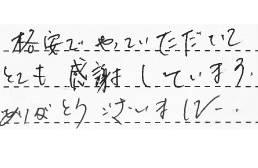 格安でやっていただいて
とても感謝しています。
ありがとうございました。